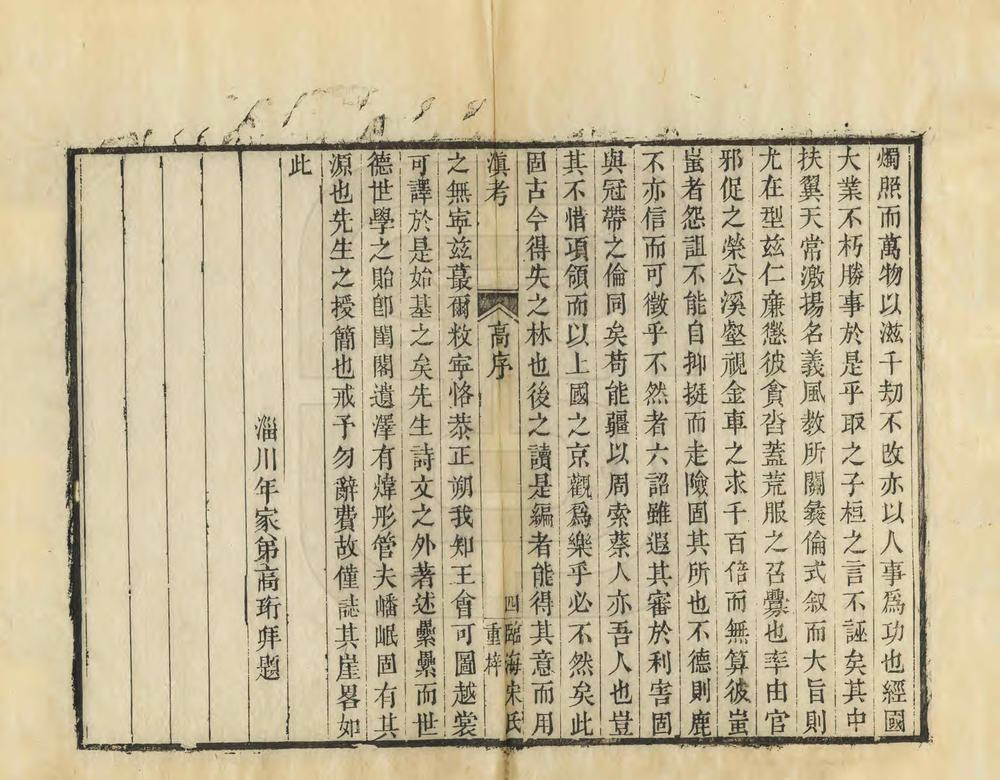 燭照而萬物以滋千劫不改亦以人事爲功也經國
大業不朽勝事於是乎取之子桓之言不誣矣其中
扶翼天常激揚名義風教所關彝倫式叙而大旨則
尤在型兹仁亷懲彼貪沓蓋荒服之召釁也率由官
邪促之榮公溪壑視金車之求千百倍而無算彼蚩
蚩者怨詛不能自抑挺而走險固其所也不德則鹿
不亦信而可徵乎不然者六詔雖遐其審於利害固
與冠帶之倫同矣苟能疆以周索蔡人亦吾人也豈
其不惜項領而以上國之京觀爲樂乎必不然矣此
固古今得失之林也後之讀是編者能得其意而用
滇考
高序
四
臨海宋氏
重梓
之無寕兹蕞爾敉寕恪恭正朔我知王會可圖越裳
可譯於是始基之矣先生詩文之外著述纍纍而世
德世學之貽卽閨閣遺澤有煒彤管夫嶓岷固有其
源也先生之授簡也戒予勿辭費故僅誌其崖畧如
此
淄川年家弟高珩拜題